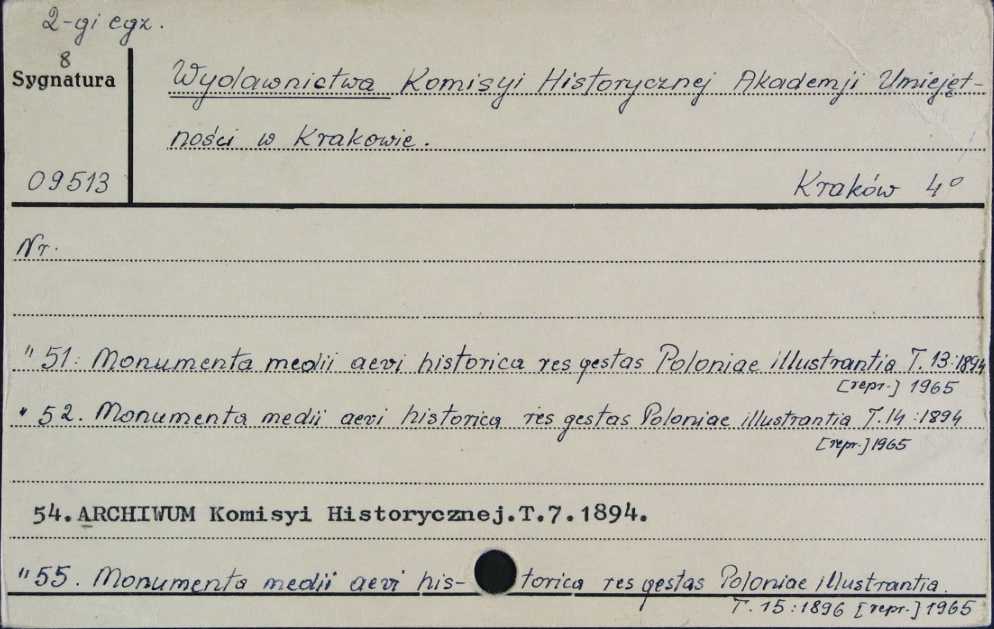 2-gi egz.
8
Sygnatura
Wydawnictwa Komisyi Historycznej Akademji Umiejęt-
ności w Krakowie.
09513
Kraków 4°
Nr.
" 51. Monumenta medii aevi historica res gestas Poloniae illustrantia T. 13:1894
[repr.] 1965
" 52. Monumenta medii aevi historica res gestas Poloniae illustrantia T.14:1894
[repr.] 1965
54. ARCHIWUM Komisyi Historycznej.T.7.1894.
" 55. Monumenta medii aevi his- torica res gestas Poloniae illustrantia.
T. 15:1896 [repr.] 1965